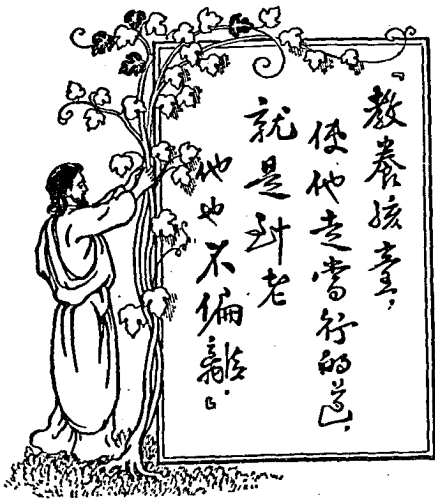 『教養孩童，
使他走當行的道，
就是到老
他也不偏離。』